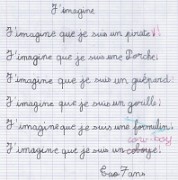 J'imagine
J'imagine que je suis un pirate!
J'imagine que je suis une Porche.
J'imagine que je suis un guépard.
J'imagine que je suis un gorille.
J'imagine que je suis une formule 1.
cow-boy
J'imagine que je suis un
7 ans